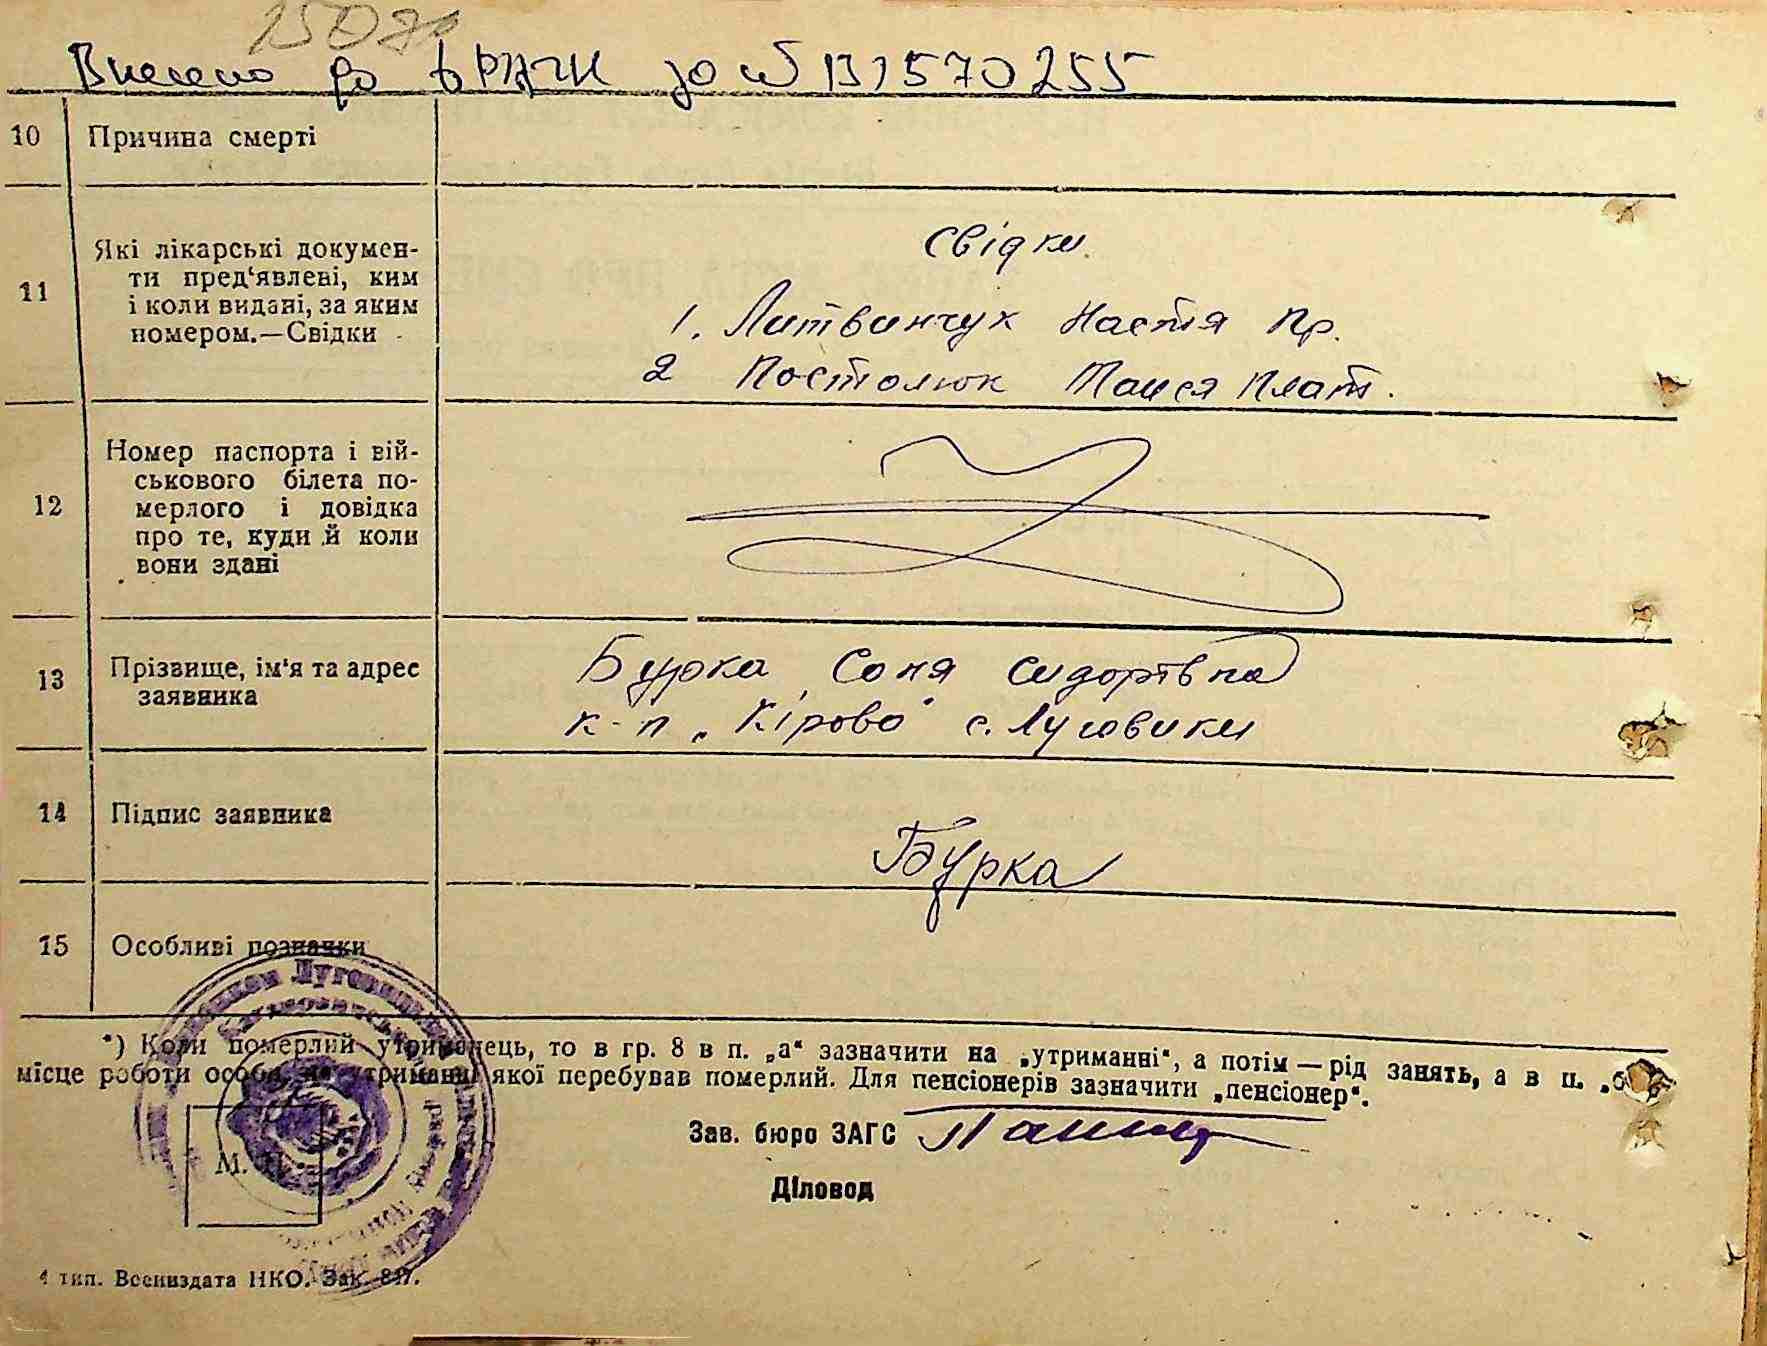 Внесено до ДРАЦС за № 131570255
10 Причина смерті
11 Які лікарські документи пред'явлені, ким і коли видані, за яким номером.—Свідки
Які лікарські докумен-
ти пред'явлені, ким
і коли видані, за яким
номером.—Свідки
Свідки
1. Литвинчук Настя Пр.
2 Постолюк Таися Плат.
12
Номер паспорта і вій-
ськового білета по-
мерлого і довідка
про те, куди й коли
вони здані
13
Прізвище, ім'я та адрес
заявника
Бурка Соня Сидорівна
к-п „Кірова" с. Луговики
14 Підпис заявника
Бурка
15 Особливі позначки
*) Коли померлий утриманець, то в гр. 8 в п. „а" зазначити на „утриманні", а потім — рід занять, а в п. „б"
місце роботи особи, на утриманні якої перебував померлий. Для пенсіонерів зазначити „пенсіонер".
Зав. бюро ЗАГС
Діловод
М.
4 тип. Воениздата НКО. Зак. 847.